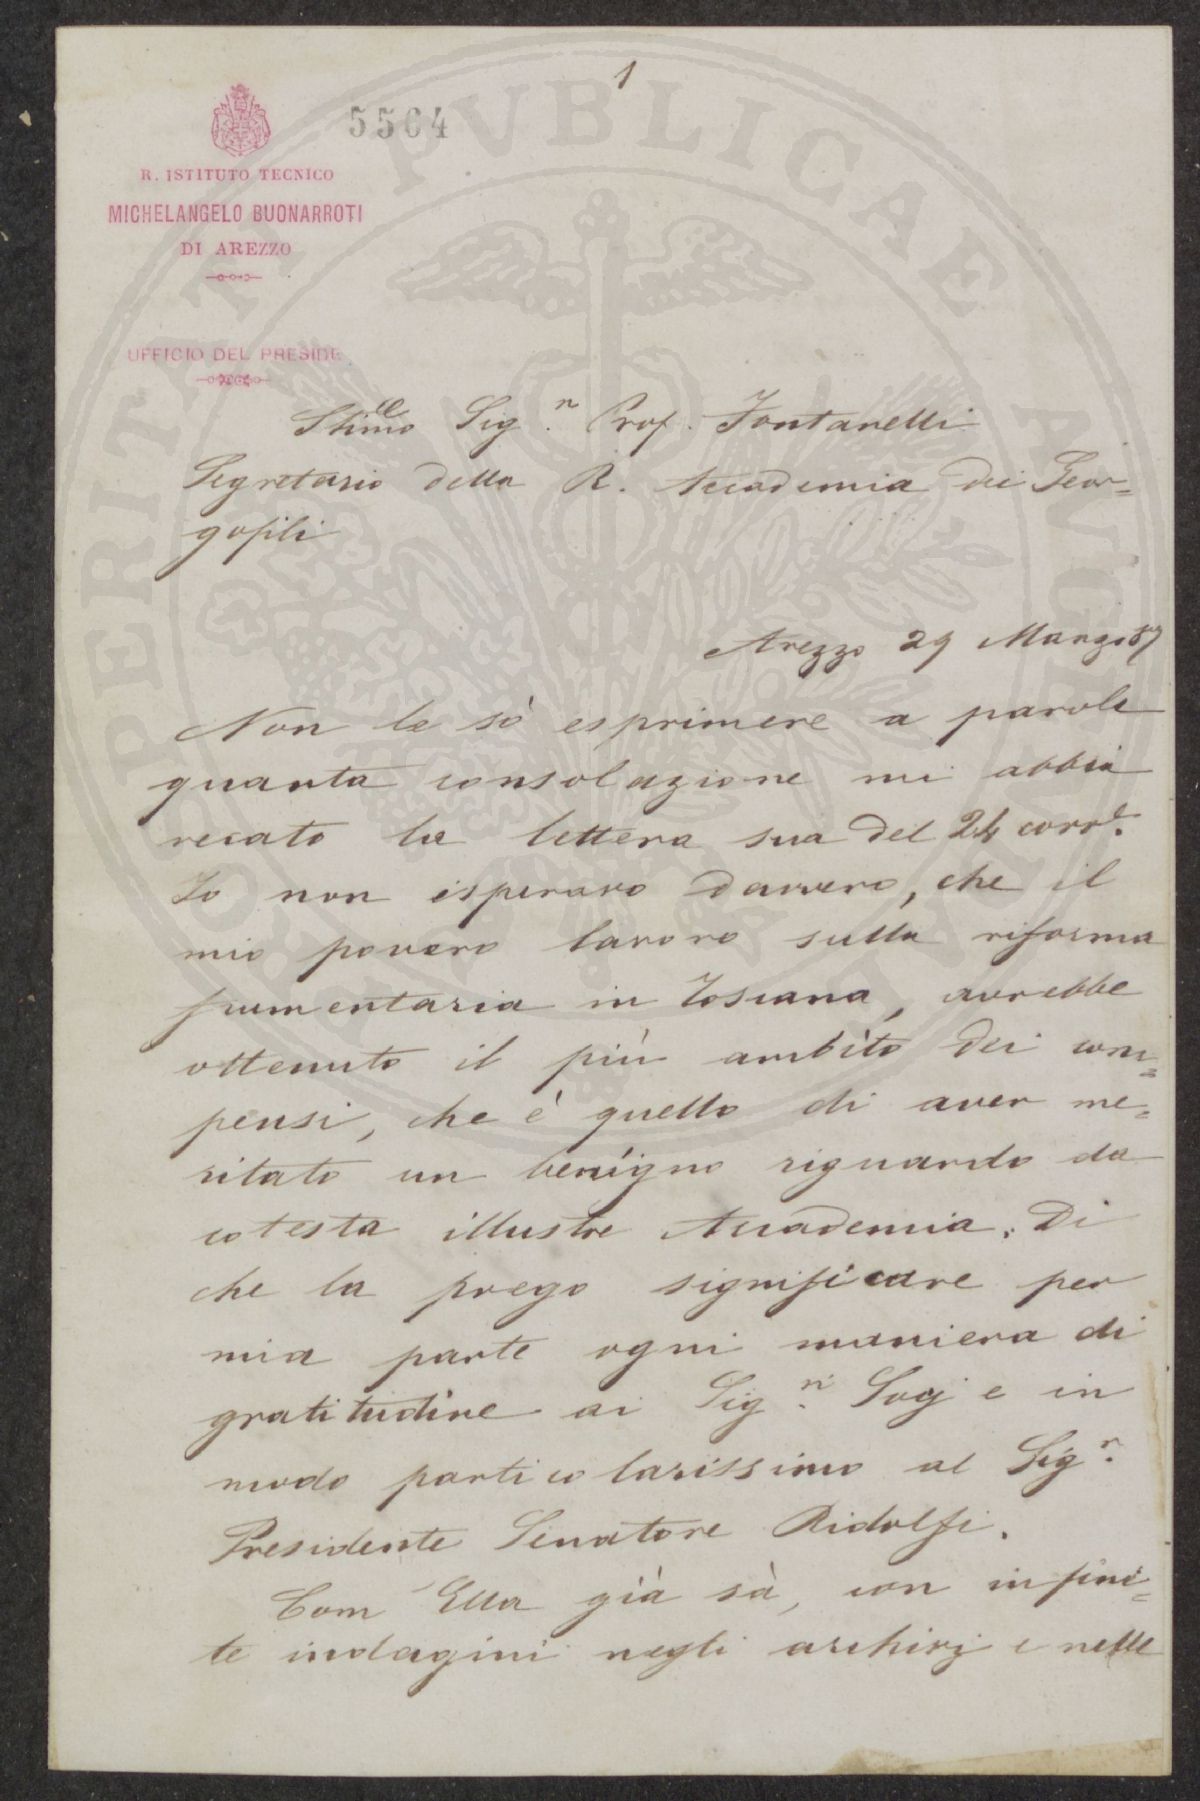 1
5564
R. ISTITUTO TECNICO
MICHELANGELO BUONARROTI
DI AREZZO
UFFICIO DEL PRESIDE
Sig.r Prof. Fontanelli
Segretario della R. Accademia dei Geor=
gofili
Arezzo 29 Marzo 87
Non le sò esprimere a parole
quanta consolazione mi abbia
recato la lettera sua del 24 corr.e
Io non isperavo davvero, che il
mio povero lavoro sulla riforma
frumentaria in Toscana, avrebbe
ottenuto il più ambìto dei com=
pensi, che è quello di aver me=
ritato un benigno riguardo da
cotesta illustre Accademia. Di
che la prego significare per
mia parte ogni maniera di
gratitudine ai Sig.ri Socj e in
modo particolarissimo al Sig.r
Presidente Senatore Ridolfi.
Com' Ella già sà, con infini=
te indagini negli archivj e nelle
PROSPERITATI PUBLICAE AUGENDAE